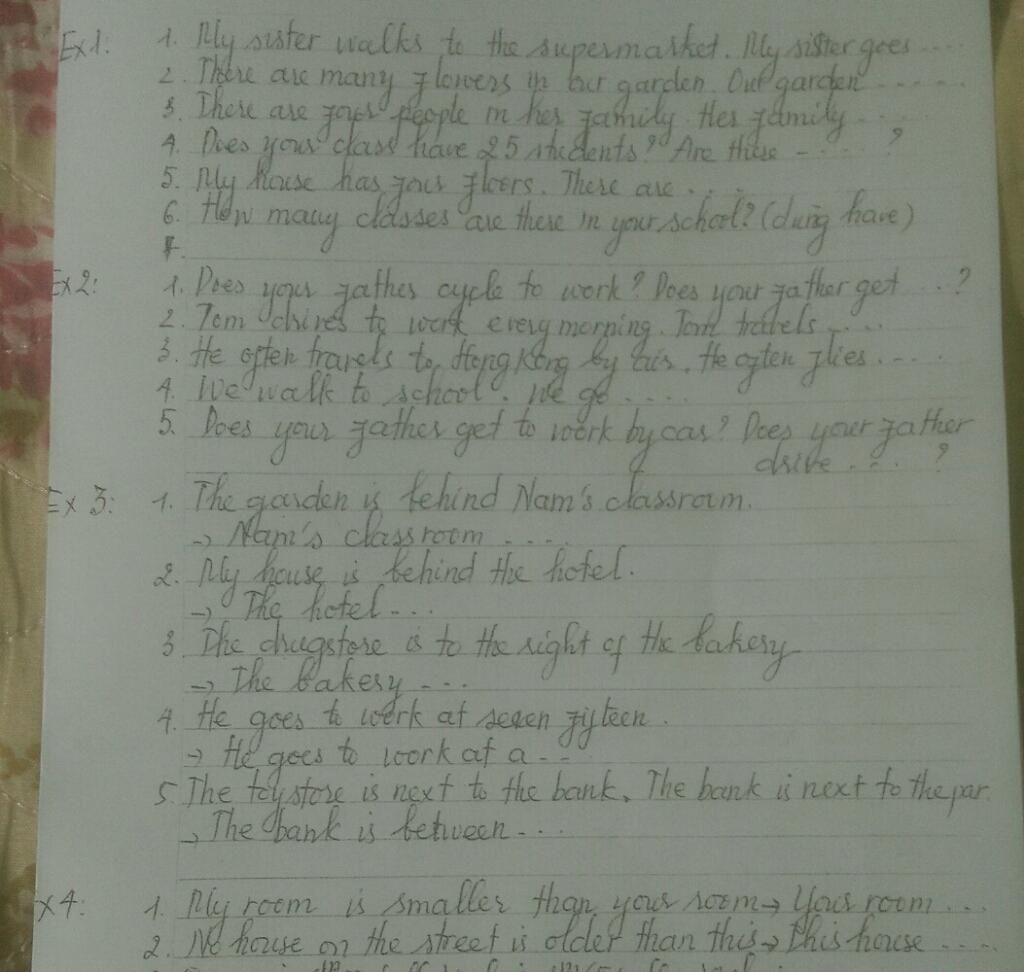 Ex1: 1. My sister walks to the supermarket. My sister goes ....
2. There are many flowers in our garden. Our garden ......
3. There are four people in her family. Her family ....
4. Does your class have 25 students? Are there ..... ?
5. My house has four floors. There are ....
6. How many classes are there in your school? (dùng have)
7.
Ex2: 1. Does your father cycle to work? Does your father get ...?
2. Tom drives to work every morning. Tom travels .....
3. He often travels to Hong Kong by air. He often flies .....
4. We walk to school. We go .....
5. Does your father get to work by car? Does your father
drive .... ?
Ex 3: 1. The garden is behind Nam's classroom.
→ Nam's classroom ....
2. My house is behind the hotel.
→ The hotel ...
3. The drugstore is to the right of the bakery
→ The bakery ...
4. He goes to work at seven fifteen.
→ He goes to work at a ...
5. The toystore is next to the bank. The bank is next to the par
→ The bank is between ....
x4: 1. My room is smaller than your room → Your room ...
2. No house on the street is older than this → This house ....